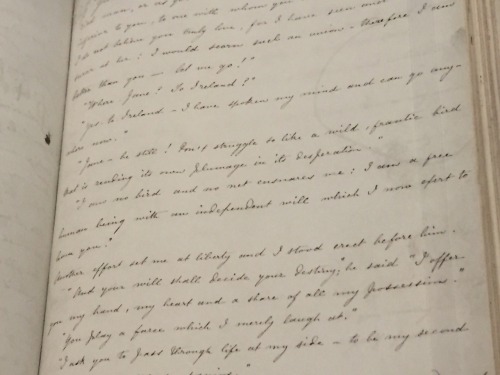 inferior to you, to one with whom you
not believe you truly love, for I have seen and
sneer at her: I would scorn such an union – therefore I am
better than you – let me go!"
"Where Jane? To Ireland?"
"yes to Ireland – I have spoken my mind and can go any-
where now."
"Jane – be still! Don't struggle so like a wild, frantic bird
that is rending its own plumage in its desperation."
"I am no bird and no net ensnares me: I am a free
human being with an independent will which I now exert to
leave you!"
Another effort set me at liberty and I stood erect before him.
"And your will shall decide your destiny," he said "I offer
you my hand, my heart and a share of all my possessions."
"You play a farce which I merely laugh at."
"I ask you to pass through life at my side – to be my second